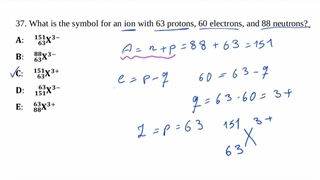 37. What is the symbol for an ion with 63 protons, 60 electrons, and 88 neutrons?
A: ¹⁵¹₆₃X³⁻
B: ⁸⁸₆₃X³⁻
C: ¹⁵¹₆₃X³⁺
D: ⁶³₁₅₁X³⁻
E: ⁶³₈₈X³⁺
A = n + p = 88 + 63 = 151
e = p - q 60 = 63 - q
q = 63 - 60 = 3+
Z = p = 63
151 3+
X
63